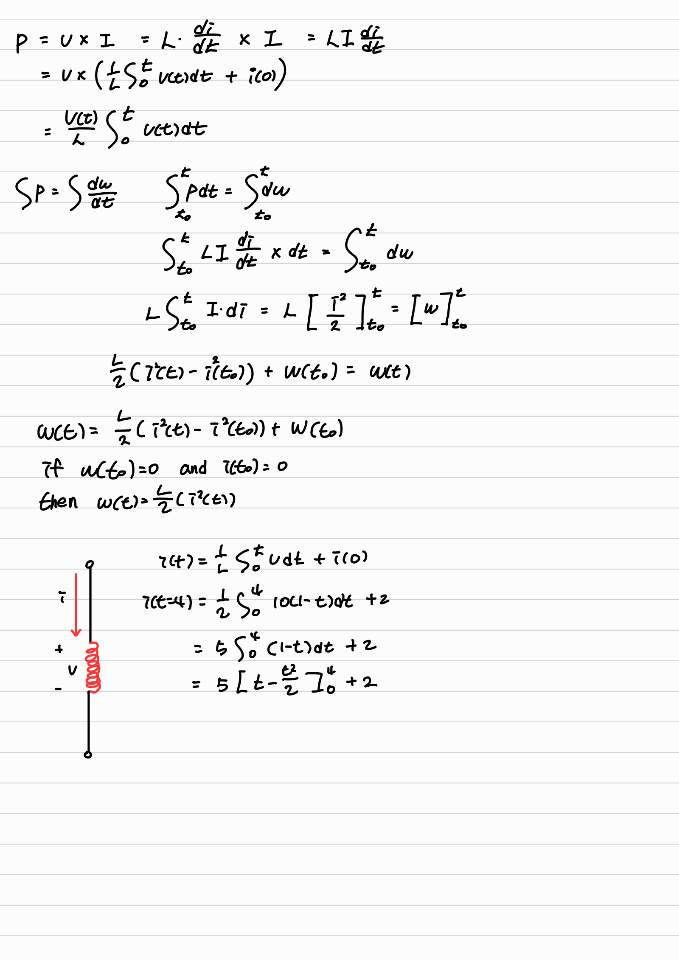 P = V × I = L · di/dt × I = LI di/dt
= V × (1/L ∫₀ᵗ V(t)dt + i(0))
= V(t)/L ∫₀ᵗ V(t)dt
∫P = ∫ dw/dt ∫ₜ₀ᵗ Pdt = ∫ₜ₀ᵗ dw
∫ₜ₀ᵗ LI di/dt × dt = ∫ₜ₀ᵗ dw
L ∫ₜ₀ᵗ I · di = L [i²/2]ₜ₀ᵗ = [w]ₜ₀ᵗ
L/2 (i²(t) - i²(t₀)) + w(t₀) = w(t)
w(t) = L/2 (i²(t) - i²(t₀)) + w(t₀)
if w(t₀)=0 and i(t₀)=0
then w(t) = L/2 (i²(t))
i(t) = 1/L ∫₀ᵗ Vdt + i(0)
i(t=4) = 1/2 ∫₀⁴ 10(1-t)dt + 2
= 5 ∫₀⁴ (1-t)dt + 2
= 5 [t - t²/2]₀⁴ + 2
i
+
V
-